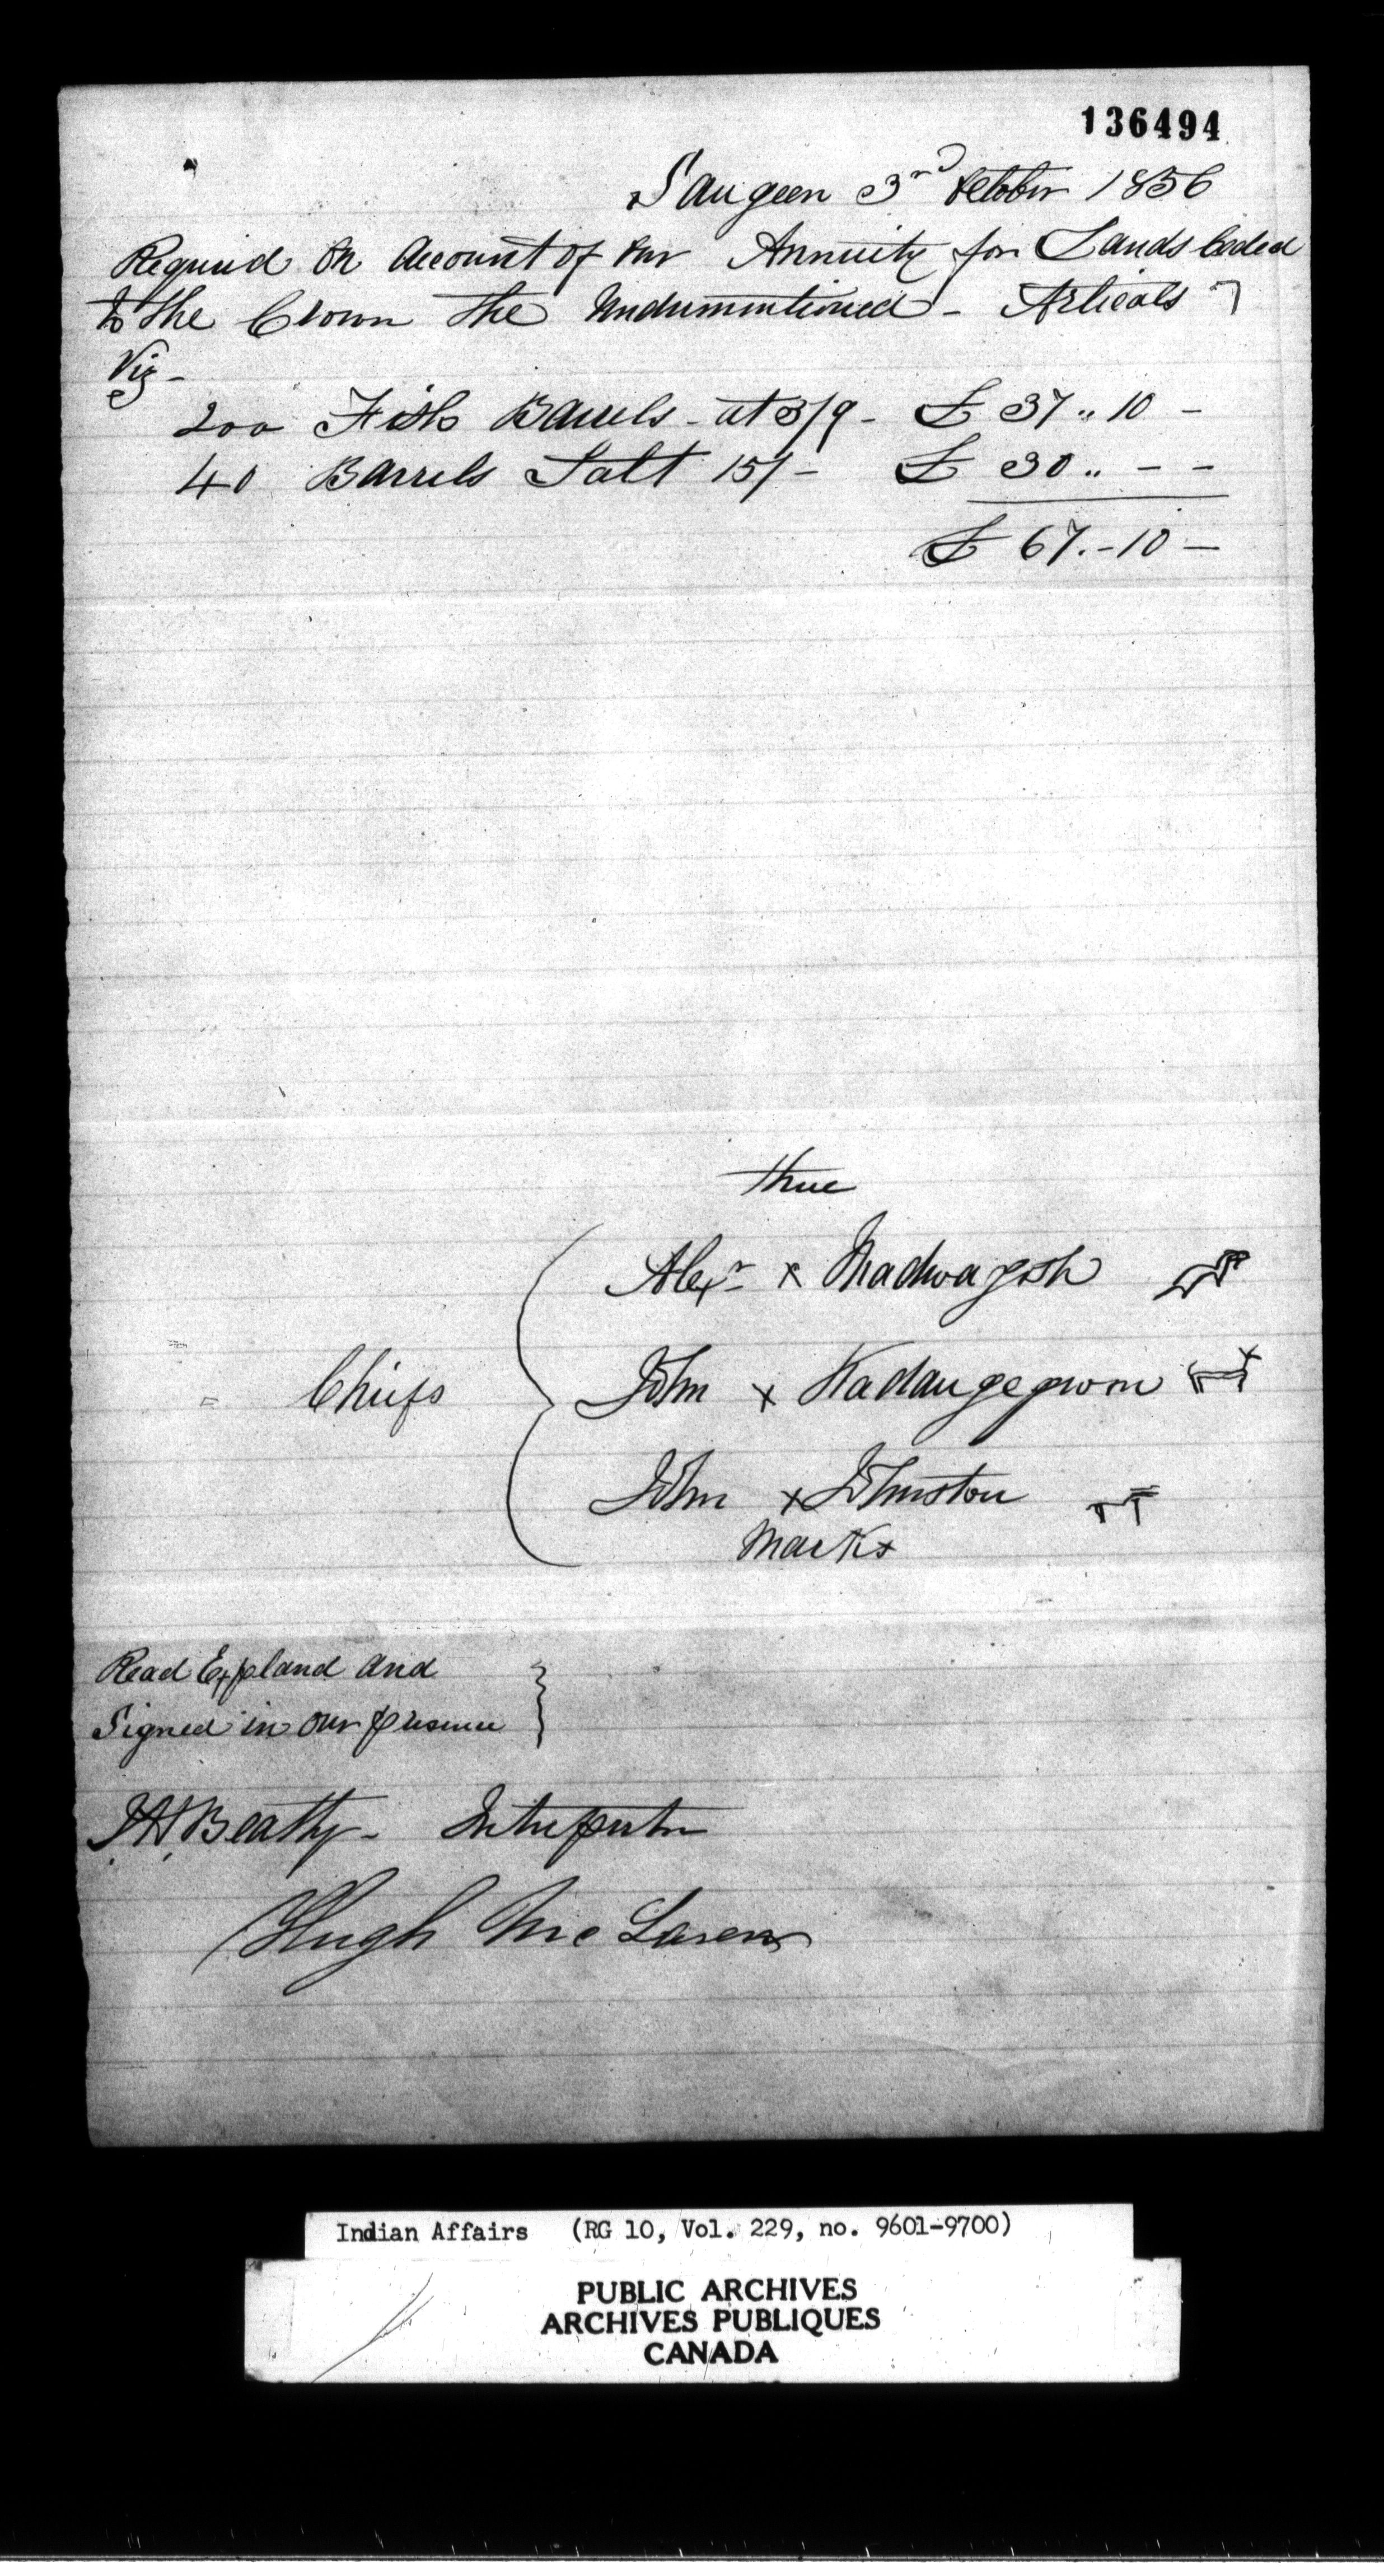 136494
Saugeen 3rd October 1856
Required On Account of Our Annuity for Lands Ceded
to the Crown the Undermentioned - Articals
Viz -
200 Fish Barrels - at 3/9 - £ 37 " 10 -
40 Barrels Salt 15/- £ 30 " - -
£ 67 .- 10 -
their
Alexr x Madwayosh
Chiefs
John x Kadaugegwon
John x Johnston
Marks
Read Expland and
Signed in Our presence
Beatty - Interperter
Hugh McLaren
Indian Affairs (RG 10, Vol. 229, no. 9601-9700)
PUBLIC ARCHIVES
ARCHIVES PUBLIQUES
CANADA